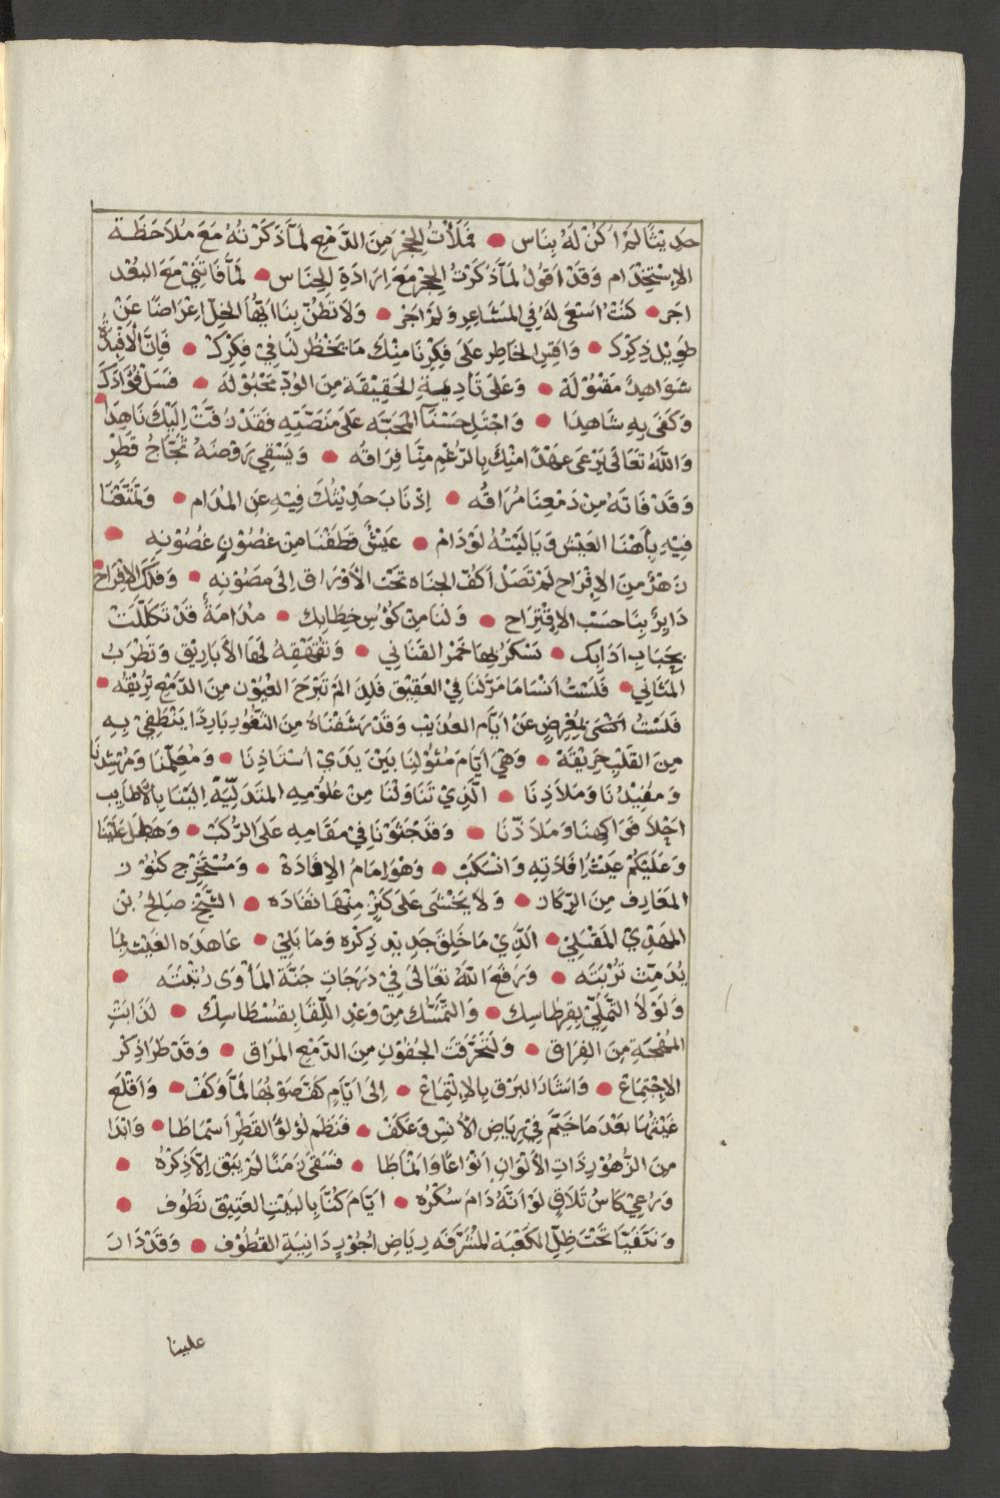 حَدِيْثًا لَمْ اَكُنْ لَهُ بِنَاسٍ • فَمَلَأْتُ الحِجْرَ مِنَ الدَّمْعِ لَمَّا ذَكَرْتُهُ مَعَ مُلَاحَظَة
الاِسْتِخْدَام وَقَدْ اَقُولُ لَمَّا ذَكَرْتُ الحِجْر مَعَ اِرَادَةِ الجِنَاس • لَمَّا فَاتَنِيْ مَعَ البُعْد
اجَر • كُنْتُ اَسْعَى لَهُ فِي المَشَاعِرِ وَلَمْ اجَر • وَلَا تَظُنّ بِنَا اَيُّهَا الخِلّ اِعْرَاضًا عَنْ
طَوِيْل ذِكْرِكَ • وَاقِسِ الخَاطِر عَلَى فِكْرِنَا مِنْكَ مَا يَخْطُر لَنَا فِي فِكْرِكَ • فَاِنَّ الْاَفْئِدَةُ
شَوَاهِدُ مَقْبُوْلَة • وَعَلَى تَأْدِيَةِ الحَقِيْقَةِ مِنَ الوُدِّ مَجْبُوْلَة • فَسَلْ فُؤَادَكَ
وَكَفَى بِهِ شَاهِدًا • وَاجْتَلِ حَسْنَآ المَحَبَّه عَلَى مِنَصَّتِهِ فَقَدْ زُفَّتْ اِلَيْكَ نَاهِدًا
وَاللّٰهُ تَعَالَى يَرْعَى عَهْدًا مِنْكَ بِالرَّغْمِ مِنَّا فِرَاقُه • وَيَسْقِي رَوْضَهُ ثَجَّاجُ قَطْرٍ
وَقَدْ فَاتَهُ مِنْ دَمْعِنَا مُرَاقُه • اِذْ نَابَ حَدِيْثُكَ فِيْهِ عَنِ المُدَام • وَتَمَتَّعْنَا
فِيْهِ بِأَهْنَا العَيْش وَيَا لَيْتَهُ لَوْ دَامْ • عَيْشٌ قَطَفْنَا مِنْ غُصُوْنٍ غُصُوْنِه •
زَهْرً مِنَ الاِفْرَاحِ لَمْ تَصَلْ اَكُفّ الجنَاه تَحْتَ الأَوْرَاق اِلَى مَصُوْنِه • وَفَلَكُ الاِفْرَاح
دَايِرٌ بِنَا حَسْب الاِقْتِرَاح • وَلَنَا مِنْ كُؤُسِ خِطَابِك • مُدَامَةٌ قَدْ تَكَلَّلَتْ
بِحَبَابِ ادَابِك • تَسْكَرُ بِهَا خَمْر القَنَانِي • وَتُقَهْقِهُ لَهَا الأَبَارِيْق وَتَطْرَبُ
المَثَانِي • فَلَسْتُ اَنْسَا مَا مَرَّ لَنَا فِي العَقِيْق فَلِذَا لَمْ تَبْرَحَ العُيُوْن مِنَ الدَّمْعِ تُرِيْقُه •
فَلَسْتُ اُصْحَى بِمُغْرِضٍ عَنْ اَيَّامِ العُذَيْب وَقَدْ رَشَفْنَاهُ مِنَ الثُّغُورِ بَارِدًا يَنْطَفِيْ بِهِ
مِنَ القَلْبِ حَرِيْقُه • وَهْيَ اَيَّامَ مُثُوْلِنَا بَيْنَ يَدَيْ اُسْتَاذِنَا • وَمُعِلِّمْنَا وَمُرْشِدِنَا
وَمُفِيْدُنَا وَمَلَاذِنَا • الَّذِيْ تَنَاوَلْنَا مِنْ عُلُوْمِهِ المُتَدَلِّيَّةً اِلَيْنَا بِالأَطَايِب
اجْلَا فَوَاكِهِنَا وَمَلَاذّنَا • وَقَدْ جَثَوْنَا فِيْ مَقَامِهِ عَلَى الرُّكَبْ • وَهَطَلَ عَلَيْنَا
وَعَلَيْكُمْ غَيْثُ اِفَادَتِهِ وَانْسَكَبْ • وَهْوَ اِمَامُ الاِفَادَهْ • وَمُسْتَخْرِج كُنُوْز
المَعَارِف مِنَ الرِّكَاز • وَلَا يَخْشَى عَلَى كَنْزٍ مِنْهَا نَفَادَه • الشَّيْخ صَالِحُ بْنُ
المَهْدِيْ المَقْبَلِيْ • الَّذِيْ مَا خَلِقَ جَدِيْد ذِكْرِه وَمَا بَلِيْ • عَاهَدَه الغَيْث بِمَا
يُدَمِّث تُرْبَتَه • وَرَفَعَ اللّٰهُ تَعَالَى فِيْ دَرَجَاتِ جَنَّة المَأْوَى رُتْبَتَه •
وَلَوْلَا التَّمَلِّيْ بِقِرْطَاسِك • وَالتَّمَسُّك مِنْ وَعْدِ اللِّقَا بِقُسْطَاسِك • لَذَابَتِ
المُهْجَة مِنَ الفِرَاق • وَلَتَحَرَّقَتِ الجُفُوْن مِنَ الدَّمْعِ المُرَاق • وَقَدْ طَرَا ذِكْر
الاِجْتِمَاعْ • وَاشَادَ البَرْق بِالاِلْتِمَاعْ • اِلَى اَيَّامٍ كَفَّ صَوْبُهَا لَمَّا وَكَفْ • وَاَقْلَعَ
غَيْثُهَا بَعْدَ مَا خَيَّمَ فِيْ رِيَاضِ الأُنْسِ وَعَكَفْ • فَنَظَم لُؤْلُؤُ القَطْرِ اَسْمَاطَا • وَاَبْدَا
مِنَ الزُّهُوْرِ ذَاتِ الأَلْوَانِ اَنْوَاعًا وَاَنْمَاطَا • فَسَقَى زَمَنًا لَمْ يَبْقَ اِلَّا ذِكْرُهُ •
وَرُعِيْ كَاسُ تَلَاقٍ لَوْ اَنَّهُ دَامَ سُكْرُه • اَيَّامَ كُنَّا بِالبَيْتِ العَتِيْق نَطُوف •
وَنَتَفَيَّا تَحْتَ ظِلِّ الكَعْبَة المُشَرَّفَه رِيَاض اُجُوْرٍ دَانِيَةِ القُطُوْف • وَقَدْ دَارَ
علينا